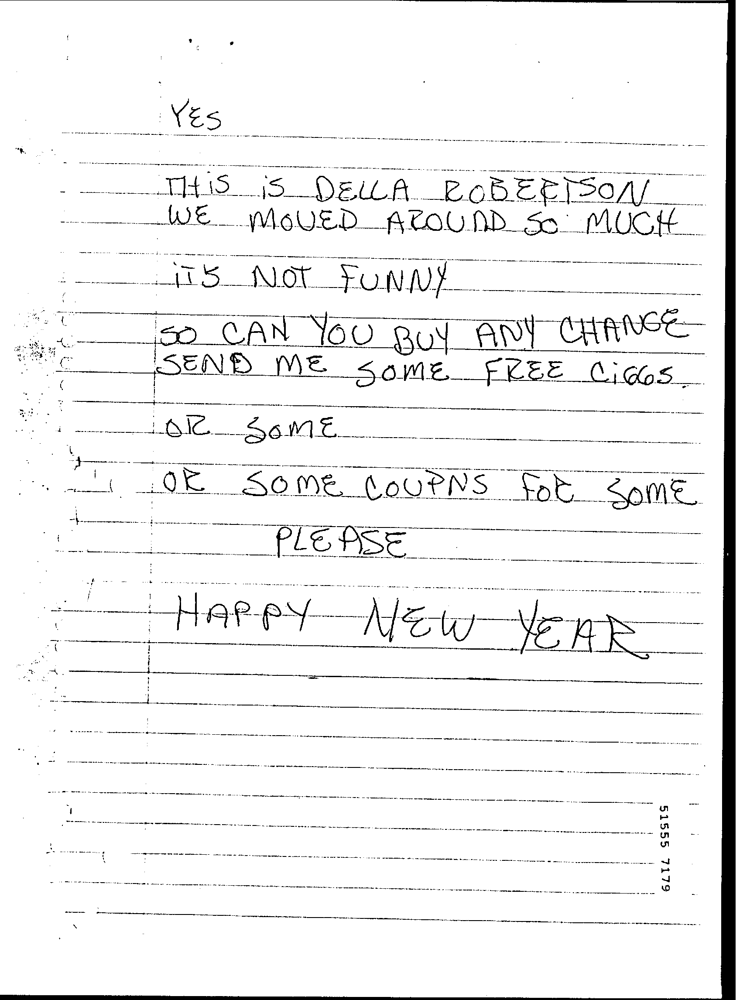 YES
THiS iS DELLA ROBERTSON
WE MOVED AROUND SO MUCH
iTS NOT FUNNY
SO CAN YOU BUY ANY CHANGE
SEND ME SOME FREE CiGGS.
OR SOME
OR SOME COUPNS FOR SOME
PLEASE
HAPPY NEW YEAR
51555 7179